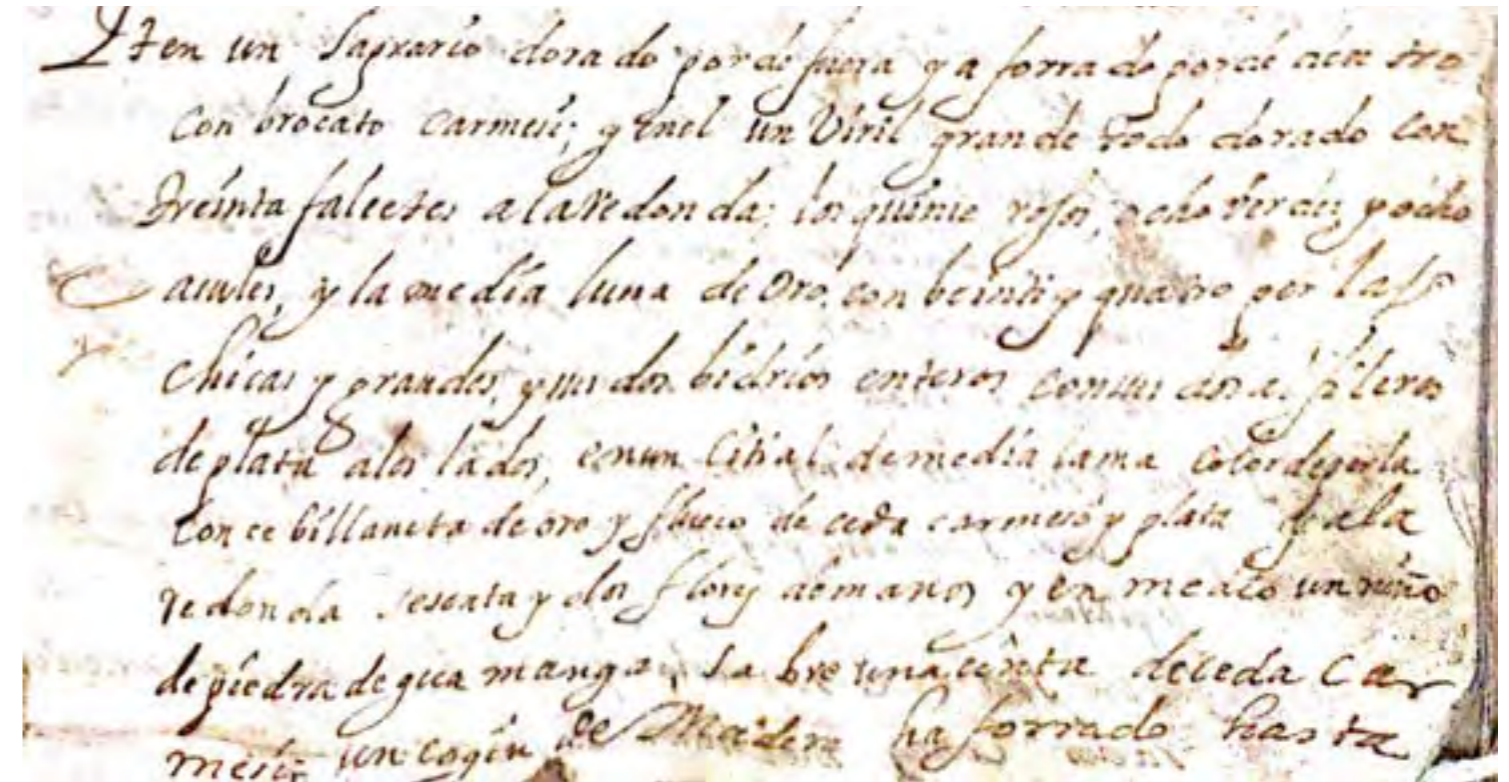 Iten un Sagrario dorado por de fuera y a forrado por de dentro
con brocato carmesi; y enel un Viril grande todo dorado con
treinta falcetes a la redonda; los quinse rojos, ocho verdes, y ocho
asules, y la media luna de Oro, con beinti y quatro perlas
chicas y grandes, y sus dos bidrios enteros con sus dos
de plata alos lados, en un Citial de media lama color de perla
con ce billaneta de oro y flueco de ceda carmesi y plata y a la
redonda sesenta y dos flores de manos y en medio un niño
de piedra de gua manga, sobre una cinta de ceda Car
mesi; un cogin de Madera forrado hasta